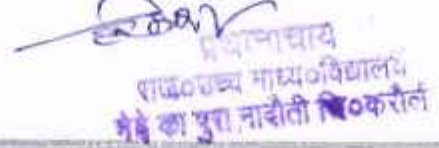 प्रधानाचार्य
राज०उच्च माध्य०विद्यालय
मेढे का पुरा नादौती जि०करौली